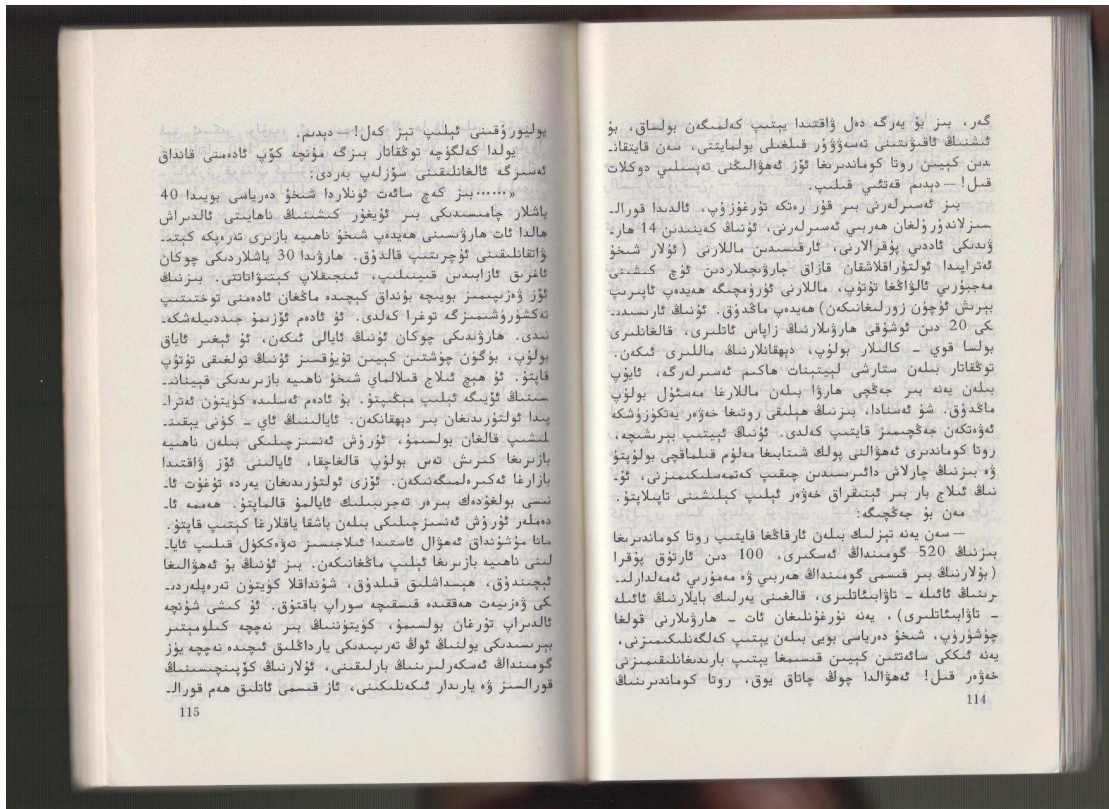 گەر، بىز بۇ يەرگە دەل ۋاقتىدا يېتىپ كەلمىگەن بولساق، بۇ
ئىشنىڭ ئاقىۋىتىنى تەسەۋۋۇر قىلغىلى بولمايتتى، سەن قايتقانـ
دىن كېيىن روتا كوماندىرىغا ئۆز ئەھۋالىڭنى تەپسىلىي دوكلات
قىل! — دېدىم قەتئىي قىلىپ.
بىز ئەسىرلەرنى بىر قۇر رەتكە تۇرغۇزۇپ، ئالدىدا قورالـ
سىزلاندۇرۇلغان ھەربىي ئەسىرلەرنى، ئۇنىڭ كەينىدىن 14 ھارـ
ۋىدىكى ئاددىي پۇقرالارنى، ئارقىسىدىن ماللارنى (ئۇلار شىخۇ
ئەتراپىدا ئولتۇراقلاشقان قازاق چارۋىچىلاردىن ئۈچ كىشىنى
مەجبۇرىي ئالۋاڭغا تۇتۇپ، ماللارنى ئۈرۈمچىگە ھەيدەپ ئاپىرىپ
بېرىش ئۈچۈن زورلىغانىكەن) ھەيدەپ ماڭدۇق. ئۇنىڭ ئارىسىدىـ
كى 20 دىن ئوشۇقى ھارۋىلارنىڭ زاپاس ئاتلىرى، قالغانلىرى
بولسا قوي ـ كالىلار بولۇپ، دېھقانلارنىڭ ماللىرى ئىكەن.
توڭقاتار بىلەن ستارشى لېيتېنات ھاكىم ئەسىرلەرگە، ئايۇپ
بىلەن يەنە بىر جەڭچى ھارۋا بىلەن ماللارغا مەسئۇل بولۇپ
ماڭدۇق. شۇ ئەسنادا، بىزنىڭ ھېلىقى روتىغا خەۋەر يەتكۈزۈشكە
ئەۋەتكەن جەڭچىمىز قايتىپ كەلدى. ئۇنىڭ ئېيتىپ بېرىشىچە،
روتا كوماندىرى ئەھۋالنى پولك شتابىغا مەلۇم قىلماقچى بولۇپتۇ
ۋە بىزنىڭ چارلاش دائىرىسىدىن چىقىپ كەتمەسلىكىمىزنى، ئۇـ
نىڭ ئىلاج بار بىر ئېنىقراق خەۋەر ئېلىپ كېلىشىنى تاپىلاپتۇ.
مەن بۇ جەڭچىگە:
— سەن يەنە تېزلىك بىلەن ئارقاڭغا قايتىپ روتا كوماندىرىغا
بىزنىڭ 520 گومىنداڭ ئەسكىرى، 100 دىن ئارتۇق پۇقرا
(بۇلارنىڭ بىر قىسمى گومىنداڭ ھەربىي ۋە مەمۇرىي ئەمەلدارلىـ
رىنىڭ ئائىلە ـ تاۋابىئاتلىرى، قالغىنى يەرلىك بايلارنىڭ ئائىلە
ـ تاۋابىئاتلىرى)، يەنە نۇرغۇنلىغان ئات ـ ھارۋىلارنى قولغا
چۈشۈرۈپ، شىخۇ دەرياسى بويى بىلەن يېتىپ كەلگەنلىكىمىزنى،
يەنە ئىككى سائەتتىن كېيىن قىسىمغا يېتىپ بارىدىغانلىقىمىزنى
خەۋەر قىل! ئەھۋالدا چوڭ چاتاق يوق، روتا كوماندىرىنىڭ
114
يوليورۇقىنى ئېلىپ تېز كەل! — دېدىم.
يولدا كەلگۈچە توڭقاتار بىزگە مۇنچە كۆپ ئادەمنى قانداق
ئەسىرگە ئالغانلىقىنى سۆزلەپ بەردى:
«……بىز كەچ سائەت ئونلاردا شىخۇ دەرياسى بويىدا 40
ياشلار چامىسىدىكى بىر ئۇيغۇر كىشىنىڭ ناھايىتى ئالدىراش
ھالدا ئات ھارۋىسىنى ھەيدەپ شىخۇ ناھىيە بازىرى تەرەپكە كېتىـ
ۋاتقانلىقىنى ئۇچرىتىپ قالدۇق. ھارۋىدا 30 ياشلاردىكى چوكان
ئاغرىق ئازابىدىن قىينىلىپ، ئىنجىقلاپ كېتىۋاتاتتى. بىزنىڭ
ئۆز ۋەزىپىمىز بويىچە بۇنداق كېچىدە ماڭغان ئادەمنى توختىتىپ
تەكشۈرۈشىمىزگە توغرا كەلدى. ئۇ ئادەم ئۆزىمۇ جىددىيلەشكەـ
نىدى. ھارۋىدىكى چوكان ئۇنىڭ ئايالى ئىكەن، ئۇ ئېغىر ئاياق
بولۇپ، بۈگۈن چۈشتىن كېيىن تۇيۇقسىز ئۇنىڭ تولغىقى تۇتۇپ
قاپتۇ. ئۇ ھېچ ئىلاج قىلالماي شىخۇ ناھىيە بازىرىدىكى قېيىنانىـ
سىنىڭ ئۆيىگە ئېلىپ مېڭىپتۇ. بۇ ئادەم ئەسلىدە كۈيتۈن ئەتراـ
پىدا ئولتۇرىدىغان بىر دېھقانكەن. ئايالىنىڭ ئاي ـ كۈنى يېقىنـ
لىشىپ قالغان بولسىمۇ، ئۇرۇش ئەنسىزچىلىكى بىلەن ناھىيە
بازىرىغا كىرىش تەس بولۇپ قالغاچقا، ئايالىنى ئۆز ۋاقتىدا
بازارغا ئەكىرەلمىگەنىكەن. ئۆزى ئولتۇرىدىغان يەردە تۇغۇت ئاـ
نىسى بولغۇدەك بىرەر تەجرىبىلىك ئايالمۇ قالماپتۇ. ھەممە ئاـ
دەملەر ئۇرۇش ئەنسىزچىلىكى بىلەن باشقا ياقلارغا كېتىپ قاپتۇ.
مانا مۇشۇنداق ئەھۋال ئاستىدا ئىلاجىسىز تەۋەككۈل قىلىپ ئاياـ
لىنى ناھىيە بازىرىغا ئېلىپ ماڭغانىكەن. بىز ئۇنىڭ بۇ ئەھۋالىغا
ئېچىندۇق، ھېسداشلىق قىلدۇق، شۇنداقلا كۈيتۈن تەرەپلەردىـ
كى ۋەزىيەت ھەققىدە قىسقىچە سوراپ باقتۇق. ئۇ كىشى شۇنچە
ئالدىراپ تۇرغان بولسىمۇ، كۈيتۈننىڭ بىر نەچچە كىلومېتىر
بېرىسىدىكى يولنىڭ ئوڭ تەرىپىدىكى يارداڭلىق ئىچىدە نەچچە يۈز
گومىنداڭ ئەسكەرلىرىنىڭ بارلىقىنى، ئۇلارنىڭ كۆپىنچىسىنىڭ
قورالسىز ۋە يارىدار ئىكەنلىكىنى، ئاز قىسمى ئاتلىق ھەم قورالـ
115